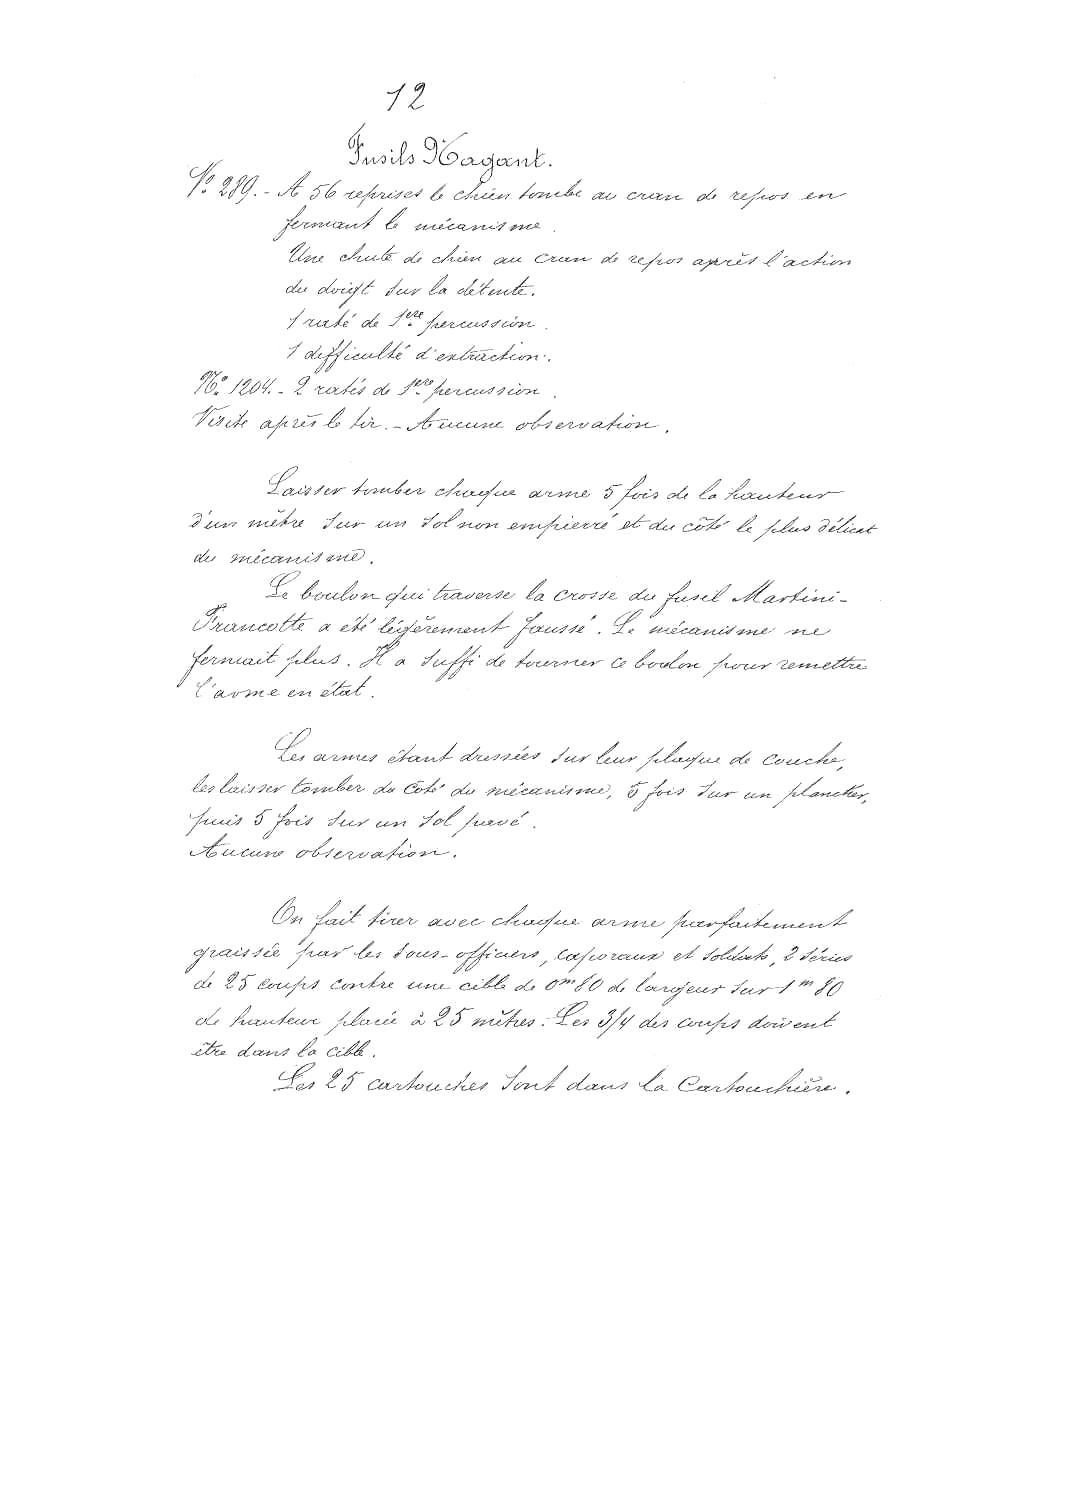 12
Fusils Nagant.
N.º 289. - A 56 reprises le chien tombe au cran de repos en
fermant le mécanisme.
Une chute de chien au cran de repos après l'action
du doigt sur la détente.
1 raté de 1ère percussion.
1 difficulté d'extraction.
N.º 1204. - 2 ratés de 1ère percussion.
Visite après le tir. - Aucune observation.
Laisser tomber chaque arme 5 fois de la hauteur
d'un mètre sur un sol non empierré et du côté le plus délicat
du mécanisme.
Le boulon qui traverse la crosse du fusil Martini-
Francotte a été légèrement faussé. Le mécanisme ne
fermait plus. Il a suffi de tourner ce boulon pour remettre
l'arme en état.
Les armes étant dressées sur leur plaque de couche,
les laisser tomber du côté du mécanisme, 5 fois sur un plancher,
puis 5 fois sur un sol pavé.
Aucune observation.
On fait tirer avec chaque arme parfaitement
graissée par les sous-officiers, caporaux et soldats, 2 séries
de 25 coups contre une cible de 0m80 de largeur sur 1m80
de hauteur placée à 25 mètres. Les 3/4 des coups doivent
être dans la cible.
Les 25 cartouches sont dans la Cartouchière.